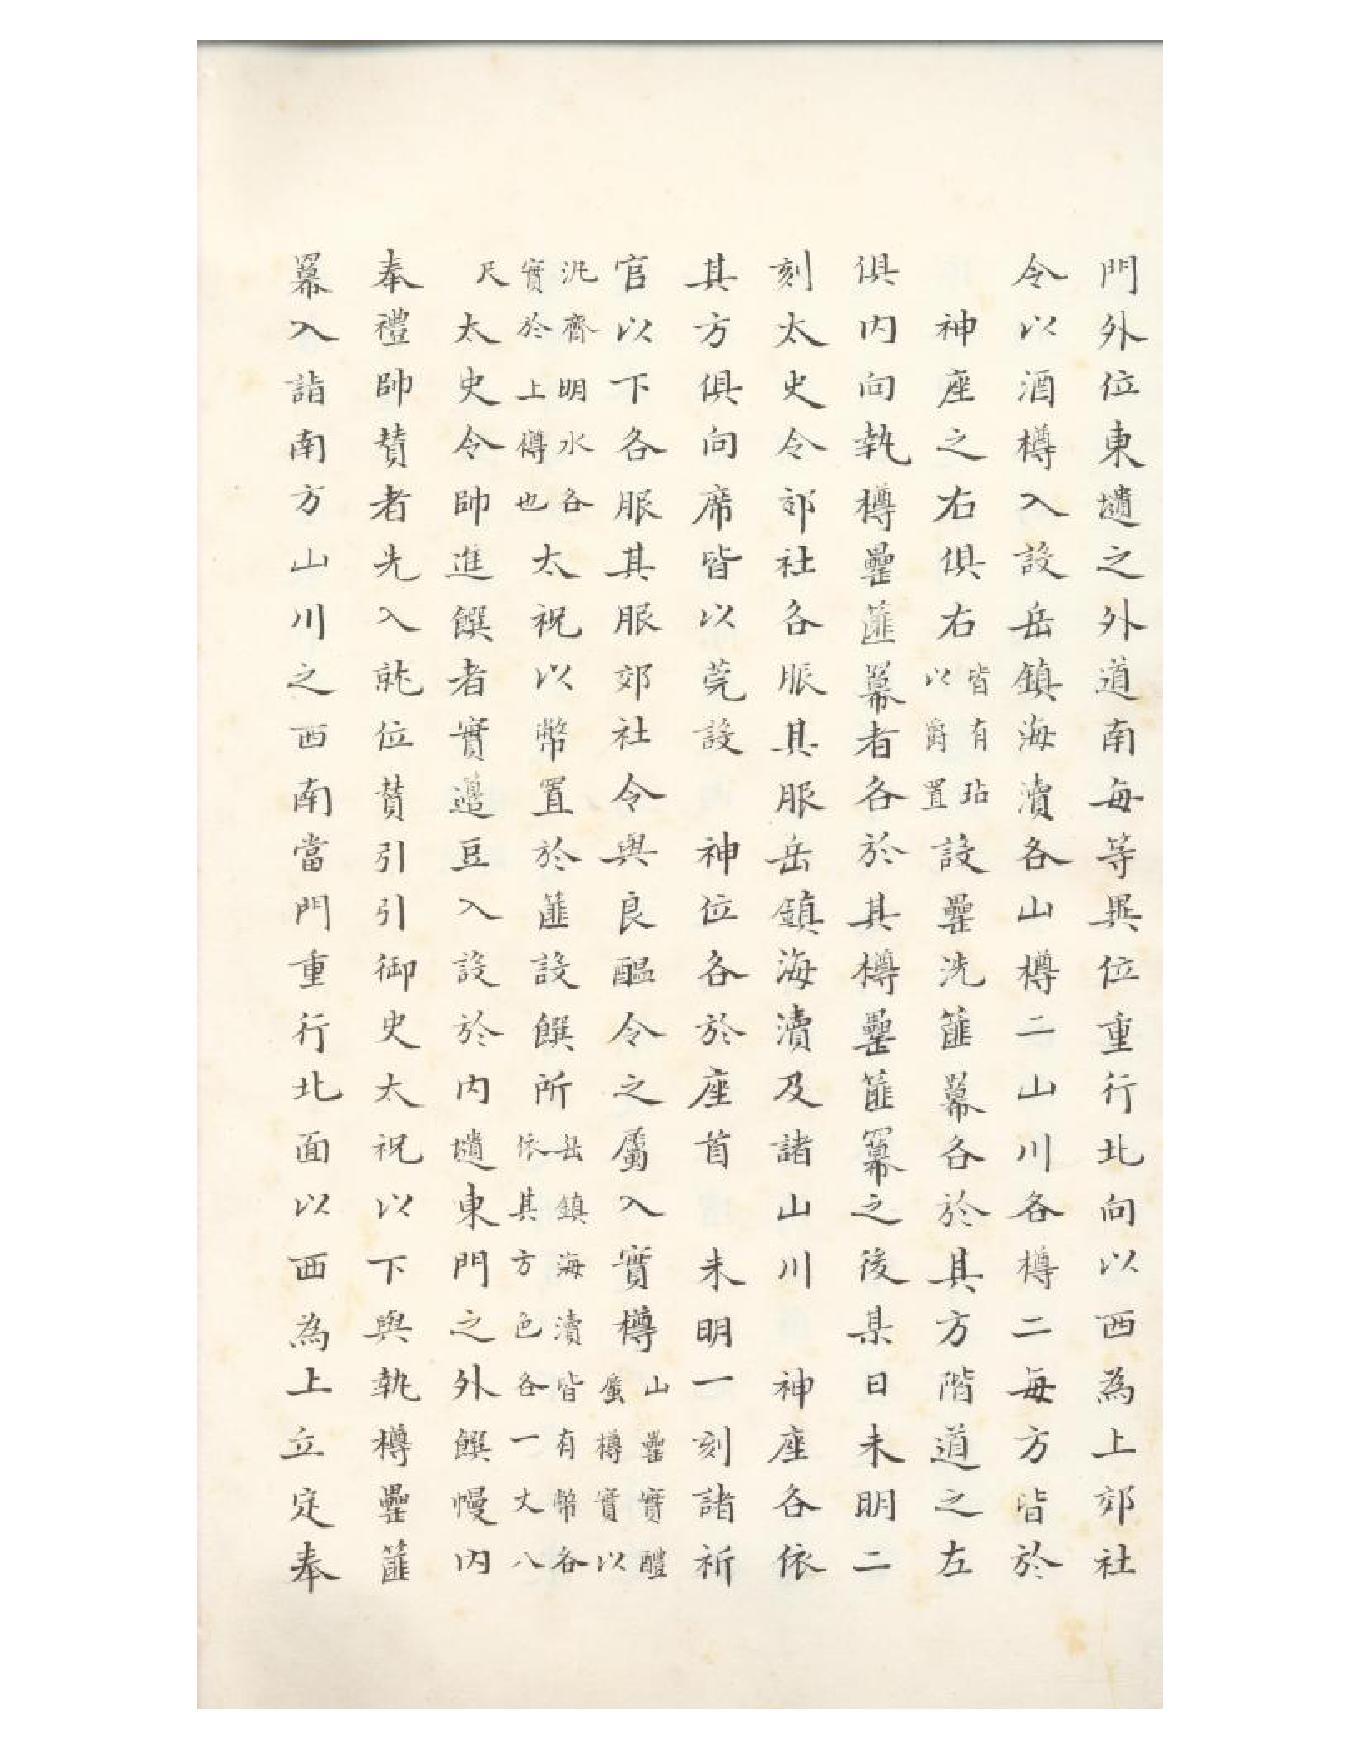 門外位東壝之外道南每等異位重行北向以西為上郊社
令以酒樽入設岳鎮海瀆各山樽二山川各樽二每方皆於
神座之右俱右皆有坫以爵置設罍洗篚羃各於其方階道之左
俱內向執樽罍篚羃者各於其樽罍篚羃之後某日未明二
刻太史令郊社各服其服岳鎮海瀆及諸山川 神座各依
其方俱向席皆以莞設 神位各於座首 未明一刻諸祈
官以下各服其服郊社令與良醞令之屬入實樽山罍實醴蜃樽實以
汎齊明水各實於上樽也太祝以幣置於篚設饌所岳鎮海瀆皆有幣各依其方色各一丈八
尺太史令帥進饌者實籩豆入設於內壝東門之外饌幔內
奉禮帥賛者先入就位賛引引御史太祝以下與執樽罍篚
羃入詣南方山川之西南當門重行北面以西為上立定奉